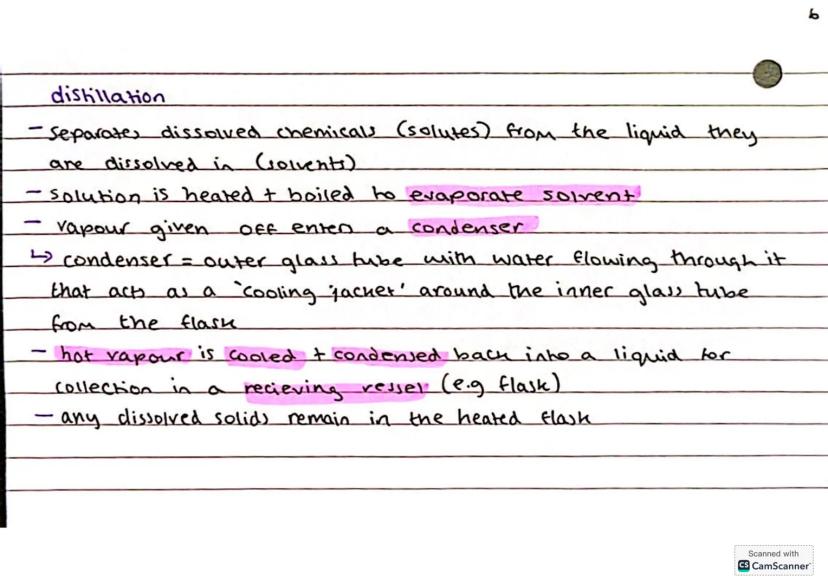 6
distillation
- separates dissolved chemicals (solutes) from the liquid they
are dissolved in (solvents)
- solution is heated + boiled to evaporate solvent
- vapour given off enters a condenser
↳ condenser = outer glass tube with water flowing through it
that acts as a 'cooling jacket' around the inner glass tube
from the flask
- hot vapour is cooled + condensed back into a liquid for
collection in a recieving vessel (e.g flask)
- any dissolved solids remain in the heated flask
Scanned with
CS CamScanner